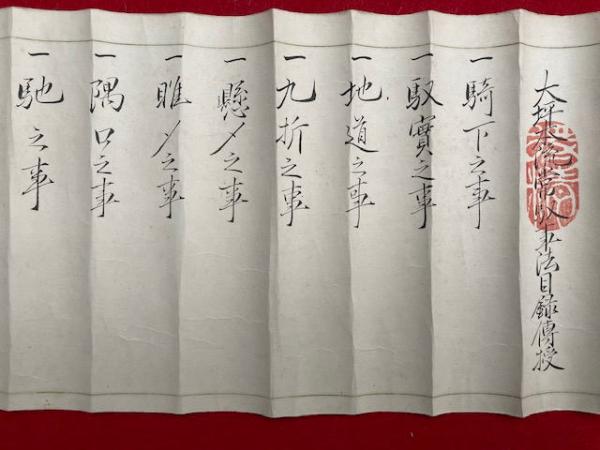 大坪本流常馭事法目録傳授
一騎下之事
一馭實之事
一地道之事
一九折之事
一懸〆之事
一睢〆之事
一隅口之事
一馳之事